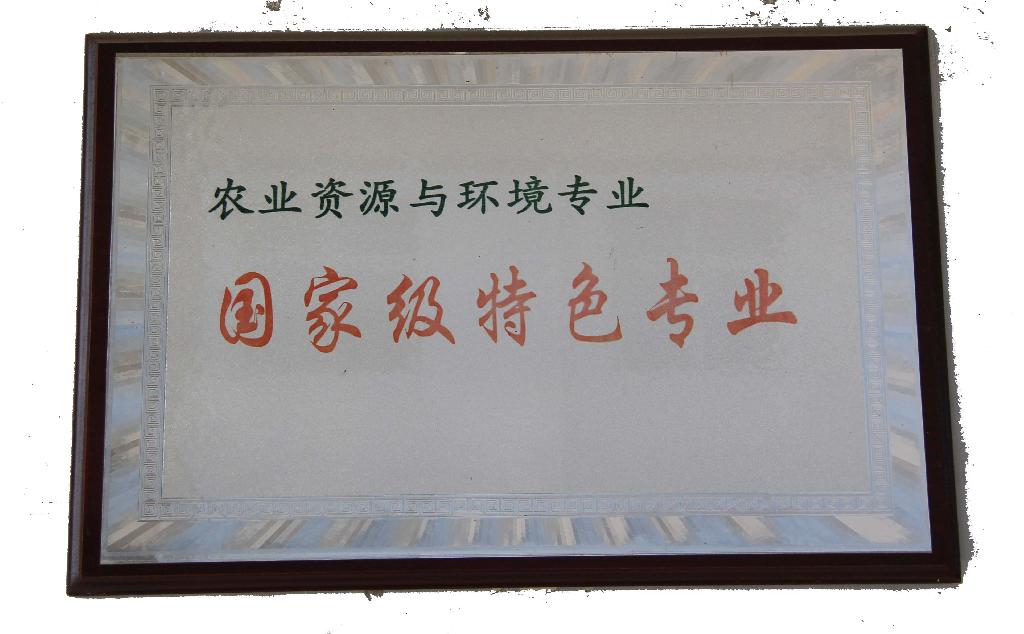 农业资源与环境专业
国家级特色专业